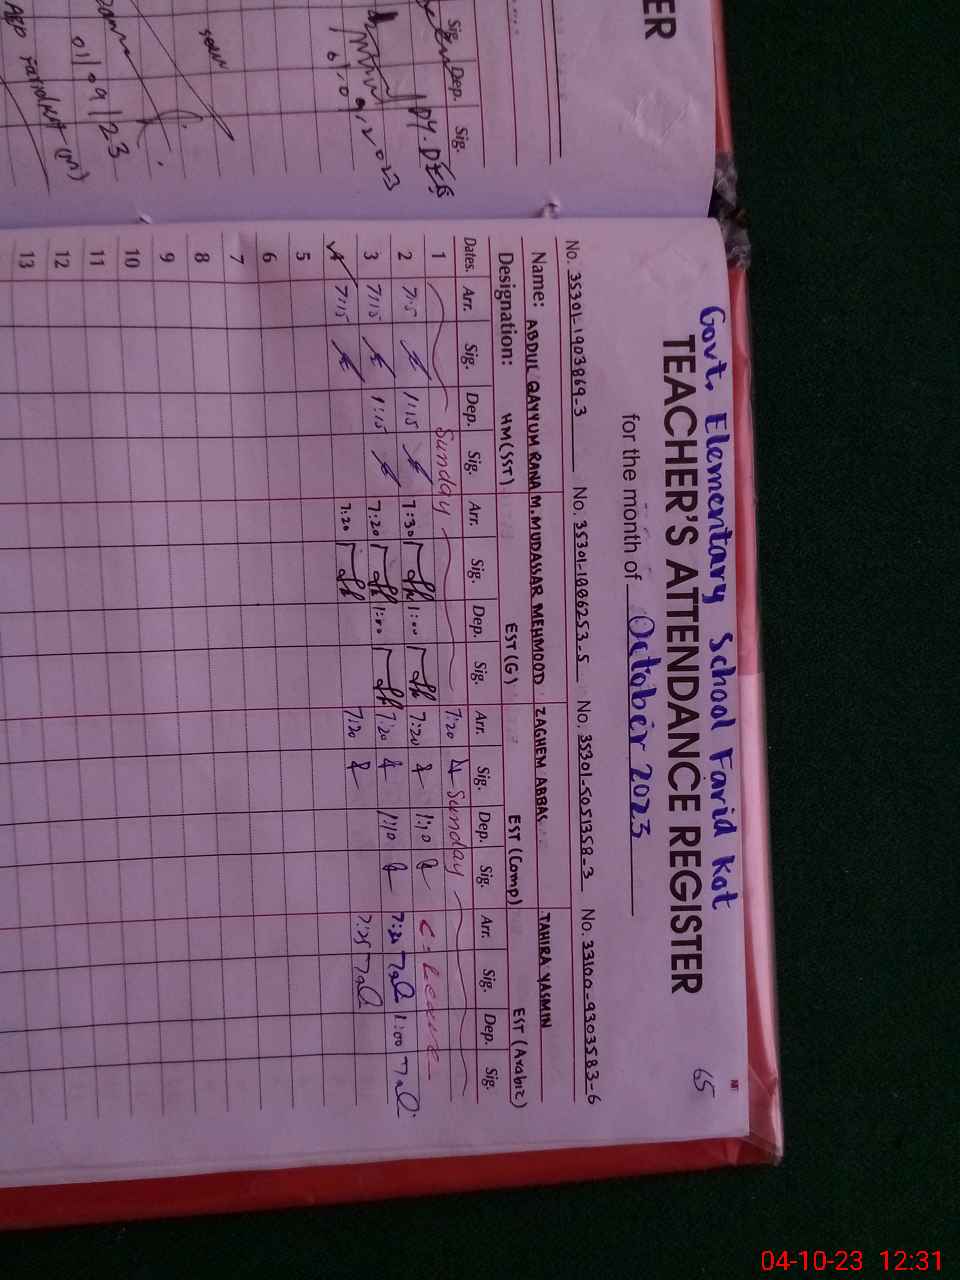 ER
Sig. Dep. Sig.
DY. DEO
01/09/23
65
Govt. Elementary School Farid Kot
TEACHER'S ATTENDANCE REGISTER
for the month of October 2023
No. 35301-1903869-3 No. 35301-1886253-5 No. 35301-5051358-3 No. 33100-9303583-6
Name: ABDUL QAYYUM RANA M.MUDASSAR MEHMOOD ZAGHEM ABBAS TAHIRA YASMIN
Designation: HM(SST) EST(G) EST(Comp) EST(Arabic)
Dates. Arr. Sig. Dep. Sig. Arr. Sig. Dep. Sig. Arr. Sig. Dep. Sig. Arr. Sig. Dep. Sig.
1 Sunday 7:20 Sunday
2 7:15 1:15 7:30 1:00 7:20 1:10 C-Leave
3 7:15 1:15 7:20 1:00 7:20 1:10 7:25 1:00
4 7:15 7:20 7:20 7:25
5
6
7
8
9
10
11
12
13
04-10-23 12:31